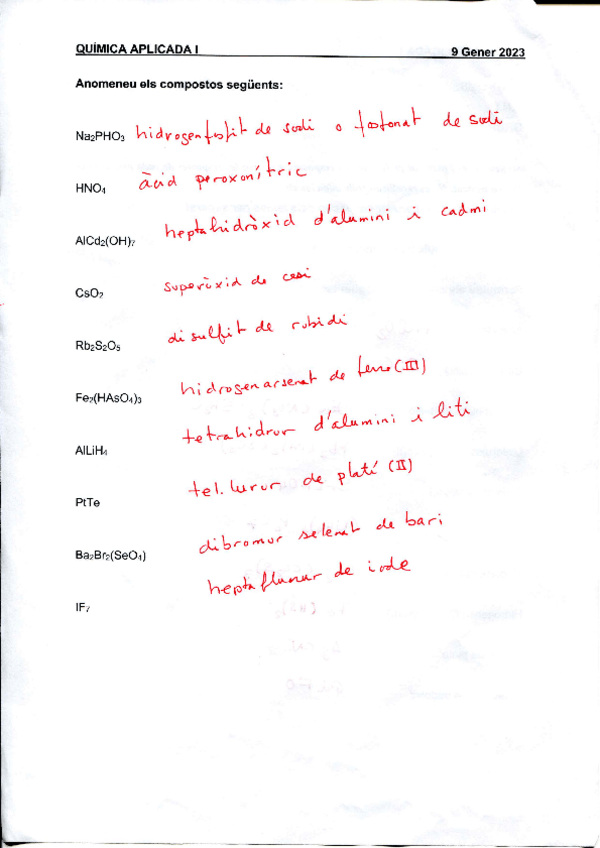 QUÍMICA APLICADA I 9 Gener 2023
Anomeneu els compostos següents:
Na₂PHO₃ hidrogenfosfit de sodi o fosfonat de sodi
HNO₄ àcid peroxonítric
AlCd₂(OH)₇ heptahidròxid d'alumini i cadmi
CsO₂ superòxid de cesi
Rb₂S₂O₅ disulfit de rubidi
Fe₂(HAsO₄)₃ hidrogenarsenat de ferro (III)
AlLiH₄ tetrahidrur d'alumini i liti
PtTe tel.lurur de platí (II)
Ba₂Br₂(SeO₄) dibromur selenat de bari
IF₇ heptafluorur de iode